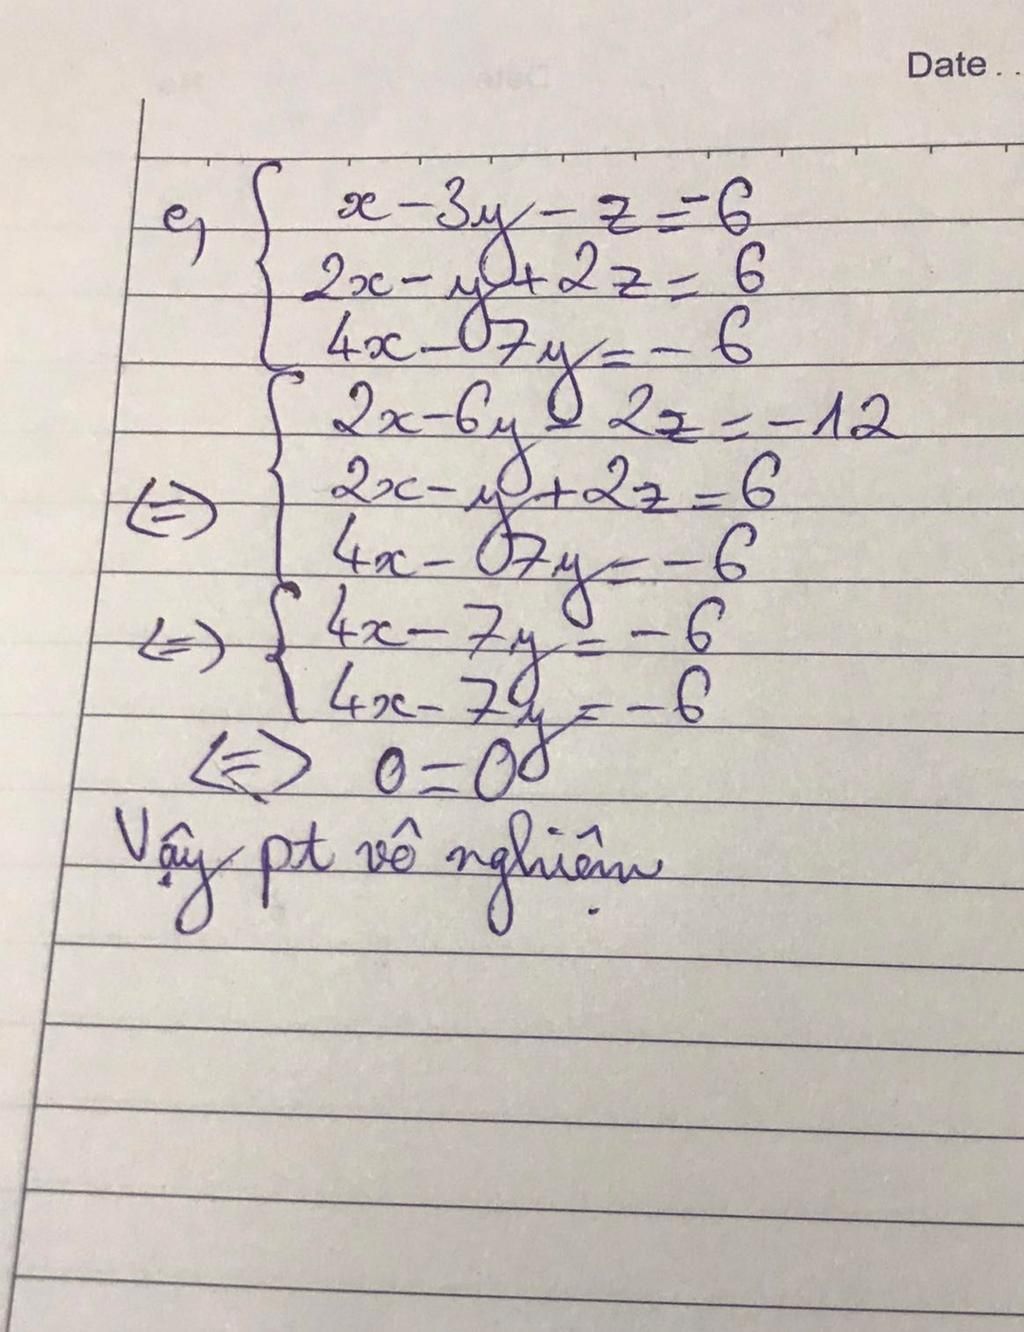 Date . .
e, x - 3y - z = -6
2x - y + 2z = 6
4x - 7y = - 6
2x - 6y - 2z = -12
<=> 2x - y + 2z = 6
4x - 7y = - 6
<=> 4x - 7y = - 6
4x - 7y = - 6
<=> 0 = 0
Vậy pt vô nghiệm